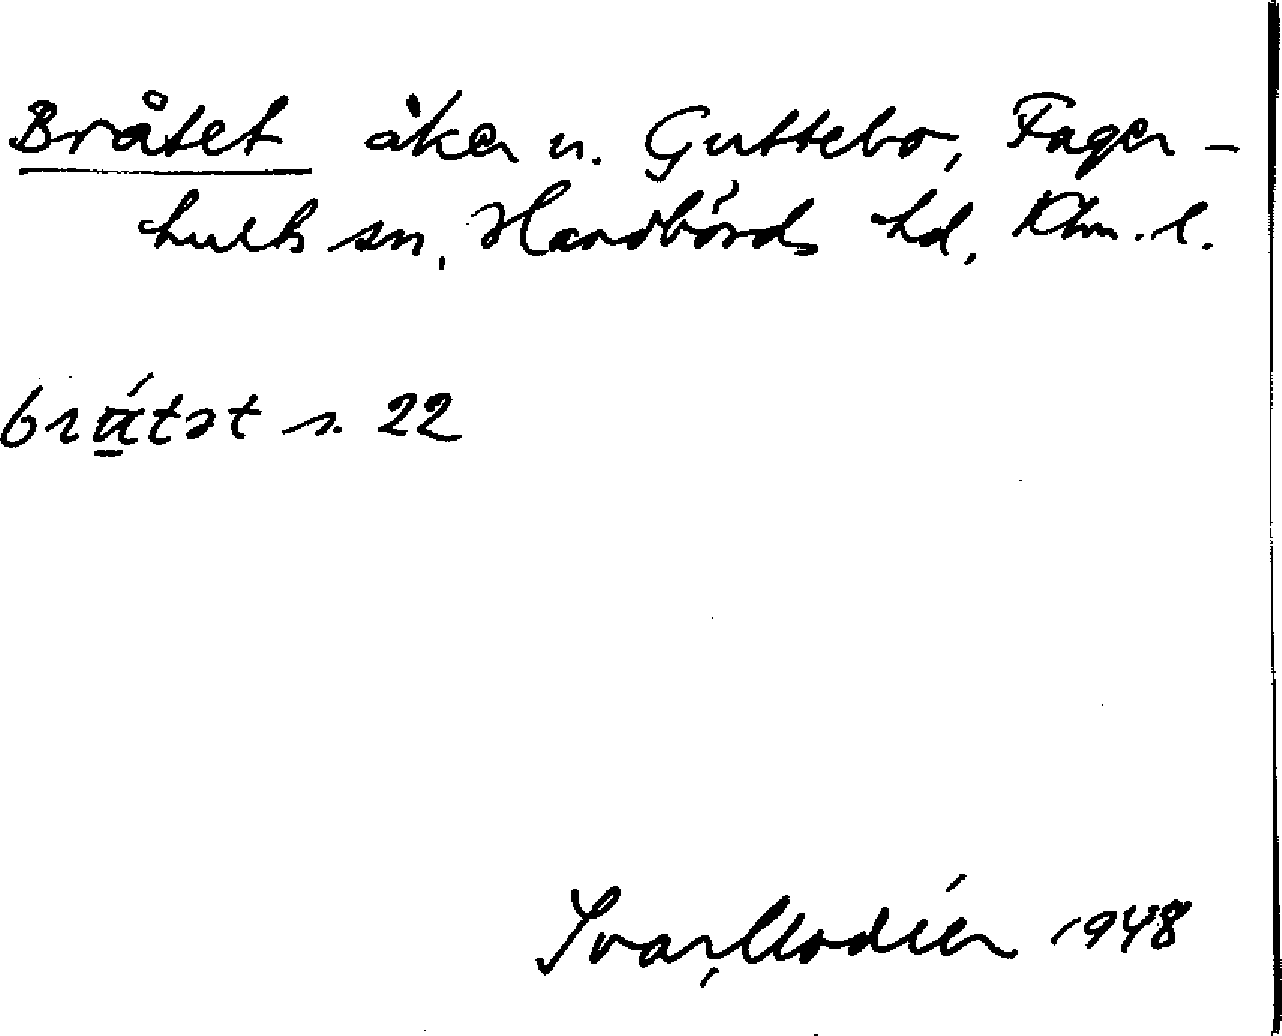 Bråtet åker u. Guttebo, Fager-
hults sn, Handbörds hd, Klm. l.
s. 22
Ivar Modéer 1948